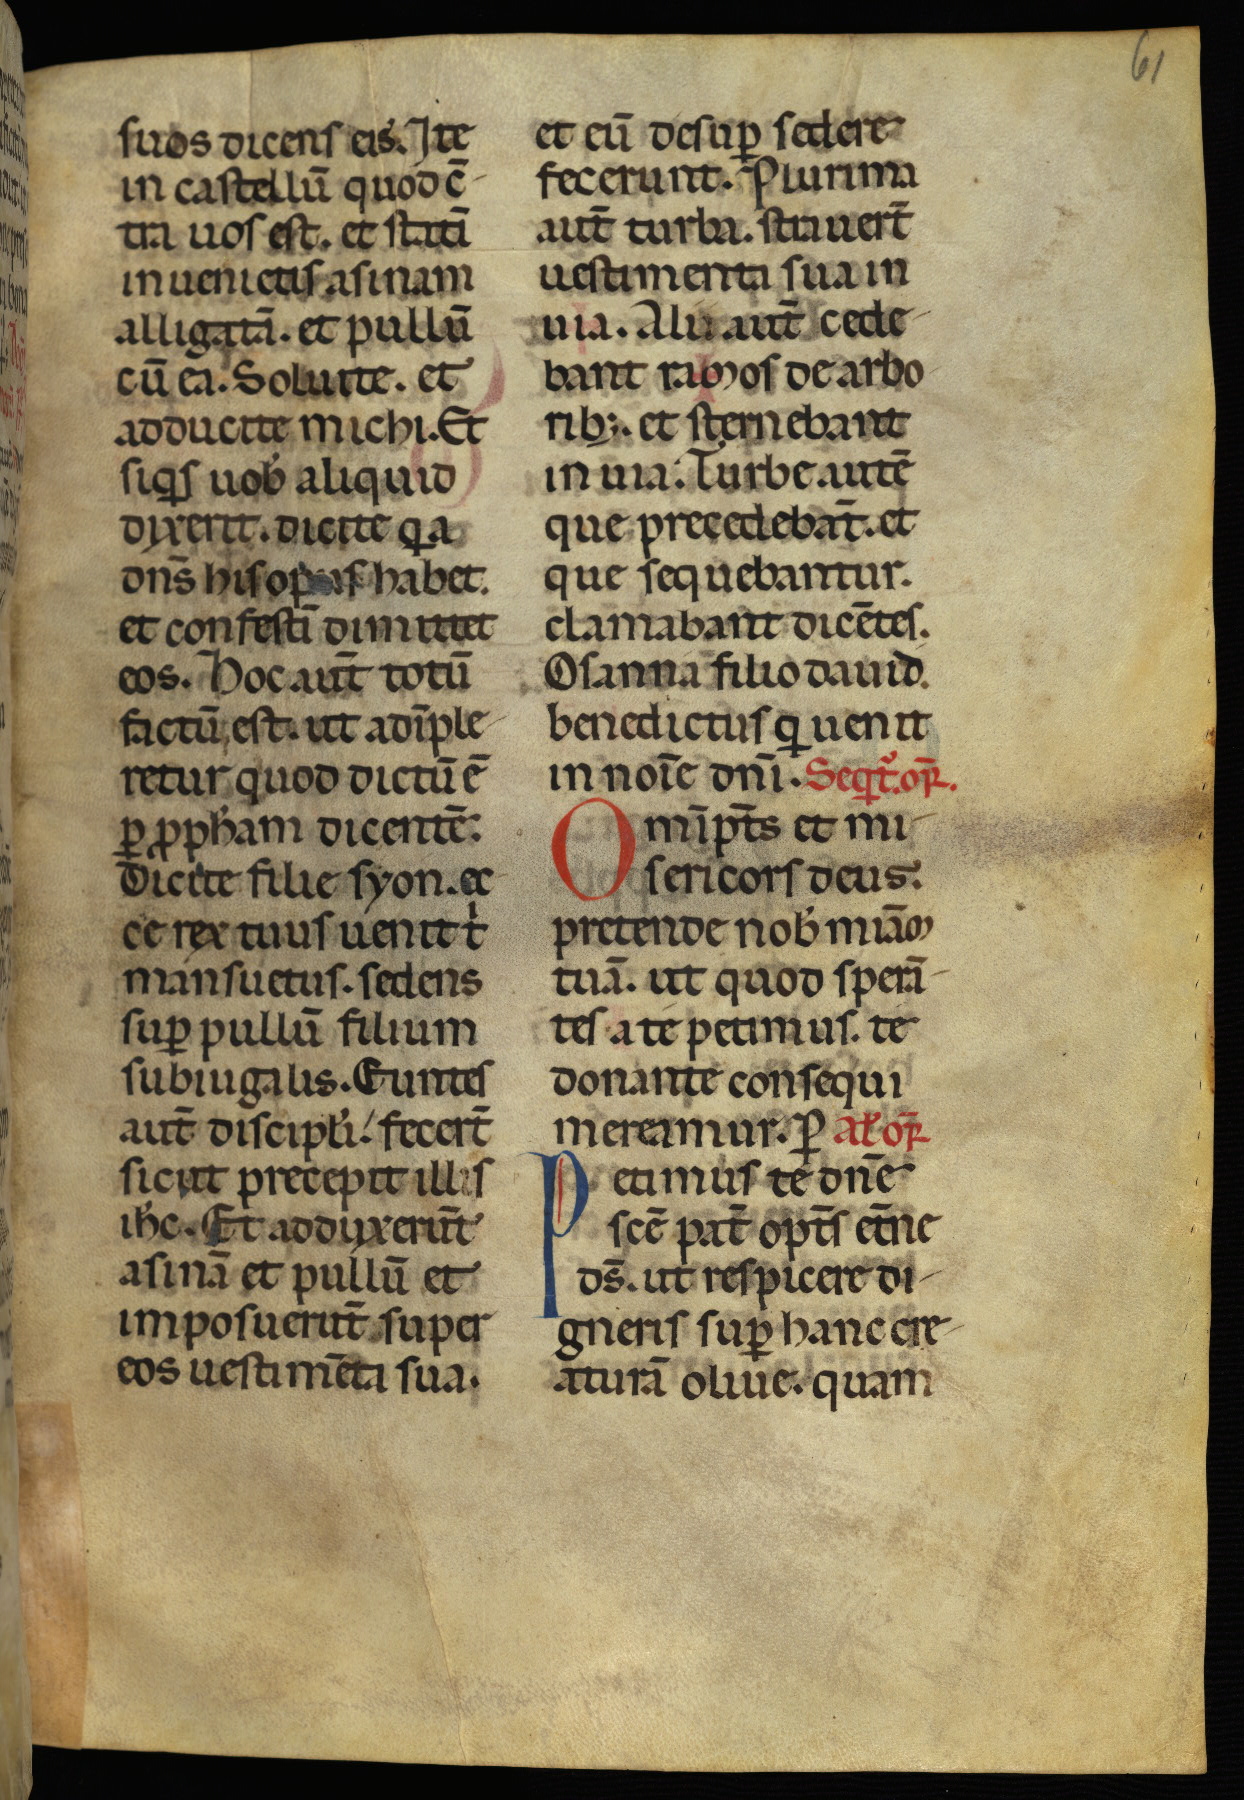 61
suos dicens eis. Ite
in castellū quod c̄
tra uos est. et statī
inuenietis asinam
alligatā. et pullū
cū ea. Soluite. et
adducite michi. Et
siqͥs uob̾ aliquid
dixerit. dicite qͥa
dn̄s his opus habet.
et confestī dimittet
eos. Hoc aut̄ totū
factū est. ut adīple
retur quod dictū ē
ꝑ ꝓph̾am dicentē.
Dicite filie syon. ec
ce rex tuus uenit t̾
mansuetus. sedens
suꝑ pullū filium
subiugalis. Euntes
aut̄ discipl̾i. fecert̄
sicut precepit illis
ih̾c. Et adduxerūt
asinā et pullū et
imposuerūt super
eos uestimēta sua.
et eū desuꝑ sedere
fecerunt. Plurima
aut̄ turba. strauert̄
uestimenta sua in
uia. Alii aut̄ cede
bant ramos de arbo
ribꝫ. et sternebant
in uia. Turbe autē
que precedebāt. et
que sequebantur.
clamabant dicētes.
Osanna filio dauid.
benedictus qͥ uenit
in noīe dn̄i. Seqͥt̾. or̄.
Omīpt̄s et mi
sericors deus.
pretende nob̾ miām
tuā. ut quod sperā
tes a te petimus. te
donante consequi
mereamur. P̱ al̾ or̄
Petimus te dn̄e
scē pat̄ opt̄s et̄ne
ds̄. ut respicere di
gneris suꝑ hanc cre
aturā oliue. quam